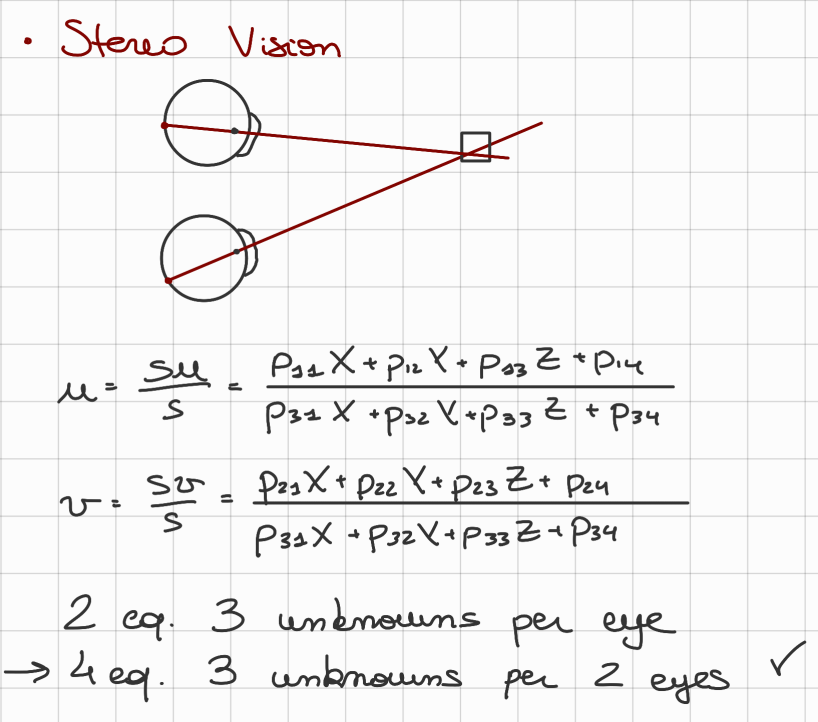 • Stereo Vision
u = su/s = (p11 X + p12 Y + p13 Z + p14)/(p31 X + p32 Y + p33 Z + p34)
v = sv/s = (p21 X + p22 Y + p23 Z + p24)/(p31 X + p32 Y + p33 Z + p34)
2 eq. 3 unknowns per eye
→ 4 eq. 3 unknowns per 2 eyes ✓